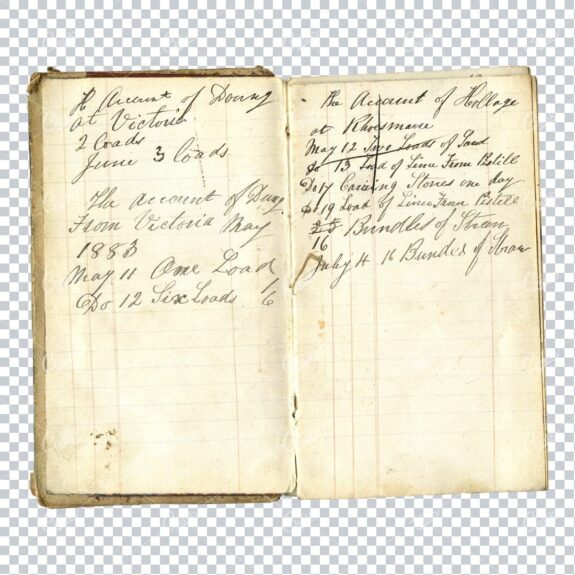 The Account of Doung
at Victoria
2 Loads
June 3 loads
The account of Dung
From Victoria May
1883
May 11 One Load
Do 12 Six Loads 6
The Account of Hollage
at Rhosmane
May 12 Two Loads of Sand
Do 13 Load of Lime From Pstill
Do 17 Carring Stones one day
Do 19 Load of Lime From Pstill
Bundles of Straw
16
July 4 16 Bundes of Straw